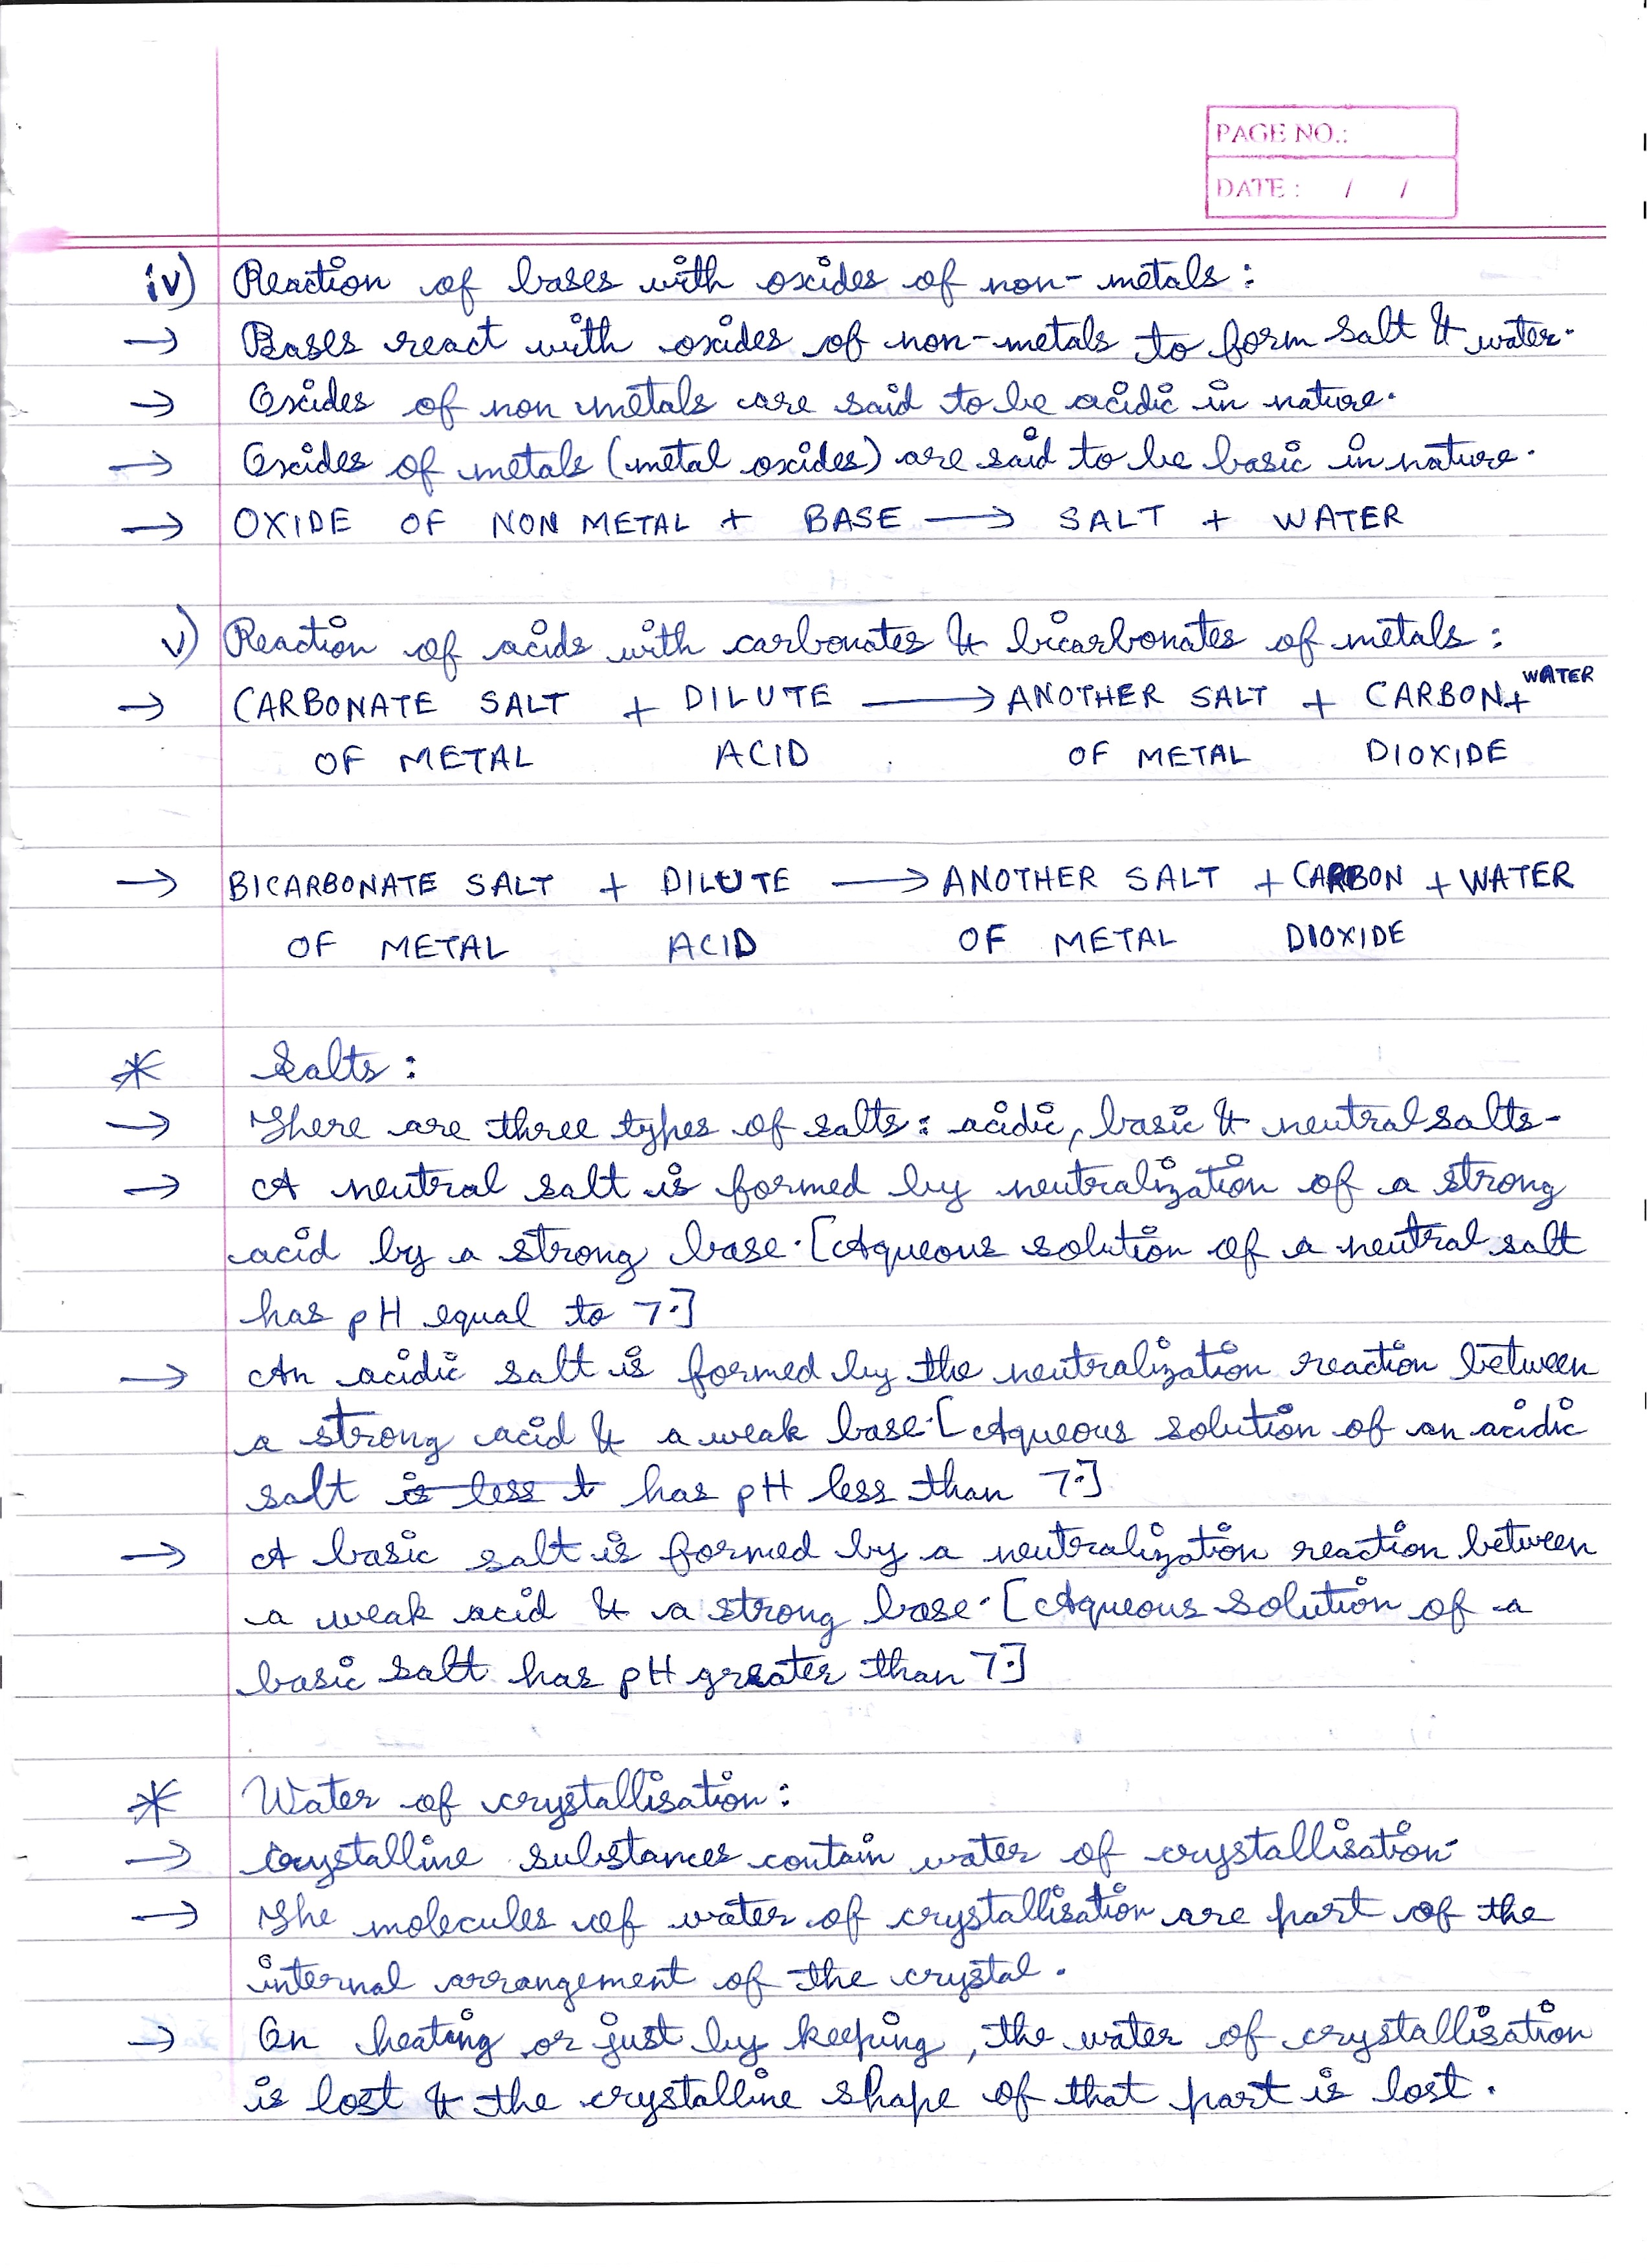 PAGE NO.:
DATE : / /
iv) Reaction of bases with oxides of non-metals:
→ Bases react with oxides of non-metals to form salt & water.
→ Oxides of non metals are said to be acidic in nature.
→ Oxides of metals (metal oxides) are said to be basic in nature.
→ OXIDE OF NON METAL + BASE → SALT + WATER
v) Reaction of acids with carbonates & bicarbonates of metals:
→ CARBONATE SALT + DILUTE → ANOTHER SALT + CARBON + WATER
OF METAL ACID OF METAL DIOXIDE
→ BICARBONATE SALT + DILUTE → ANOTHER SALT + CARBON + WATER
OF METAL ACID OF METAL DIOXIDE
* Salts:
→ There are three types of salts: acidic, basic & neutral salts.
→ A neutral salt is formed by neutralization of a strong
acid by a strong base. [Aqueous solution of a neutral salt
has pH equal to 7.]
→ An acidic salt is formed by the neutralization reaction between
a strong acid & a weak base. [Aqueous solution of an acidic
salt is less t has pH less than 7.]
→ A basic salt is formed by a neutralization reaction between
a weak acid & a strong base. [Aqueous solution of a
basic salt has pH greater than 7.]
* Water of crystallisation:
→ Crystalline substances contain water of crystallisation.
→ The molecules of water of crystallisation are part of the
internal arrangement of the crystal.
→ On heating or just by keeping, the water of crystallisation
is lost & the crystalline shape of that part is lost.